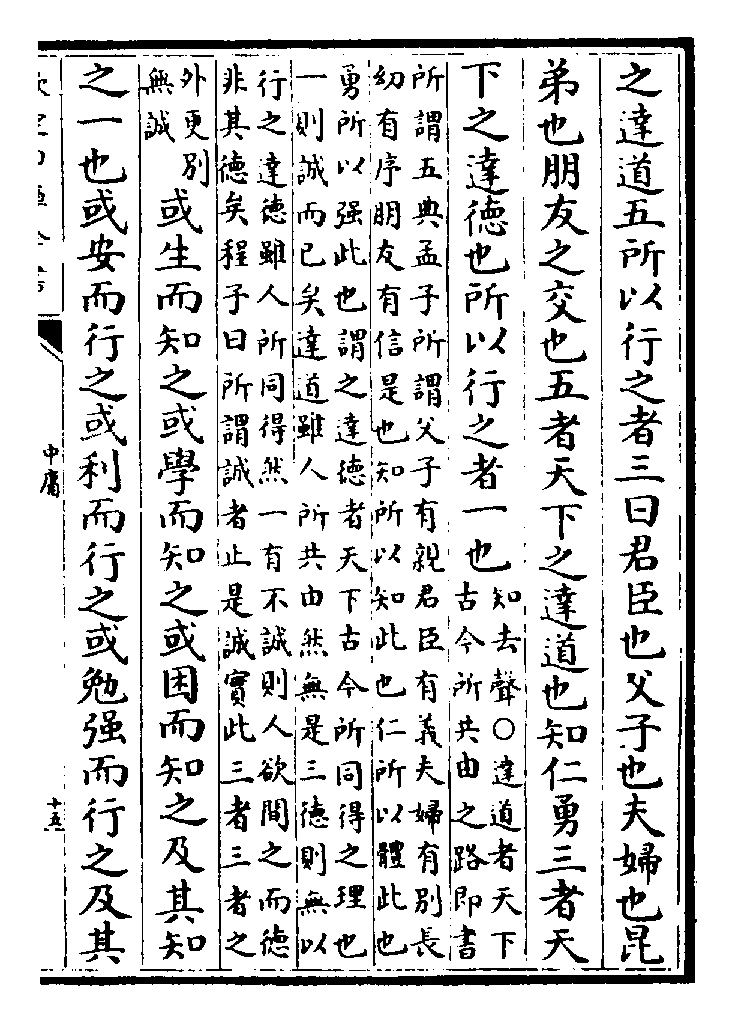 之達道五所以行之者三曰君臣也父子也夫婦也昆
弟也朋友之交也五者天下之達道也知仁勇三者天
下之達德也所以行之者一也
知去聲○達道者天下
古今所共由之路即書
所謂五典孟子所謂父子有親君臣有義夫婦有别長
幼有序朋友有信是也知所以知此也仁所以體此也
勇所以强此也謂之達德者天下古今所同得之理也
一則誠而已矣達道雖人所共由然無是三德則無以
行之達德雖人所同得然一有不誠則人欲間之而德
非其德矣程子曰所謂誠者止是誠實此三者三者之
外更别
無誠
或生而知之或學而知之或困而知之及其知
之一也或安而行之或利而行之或勉强而行之及其
中庸
十五